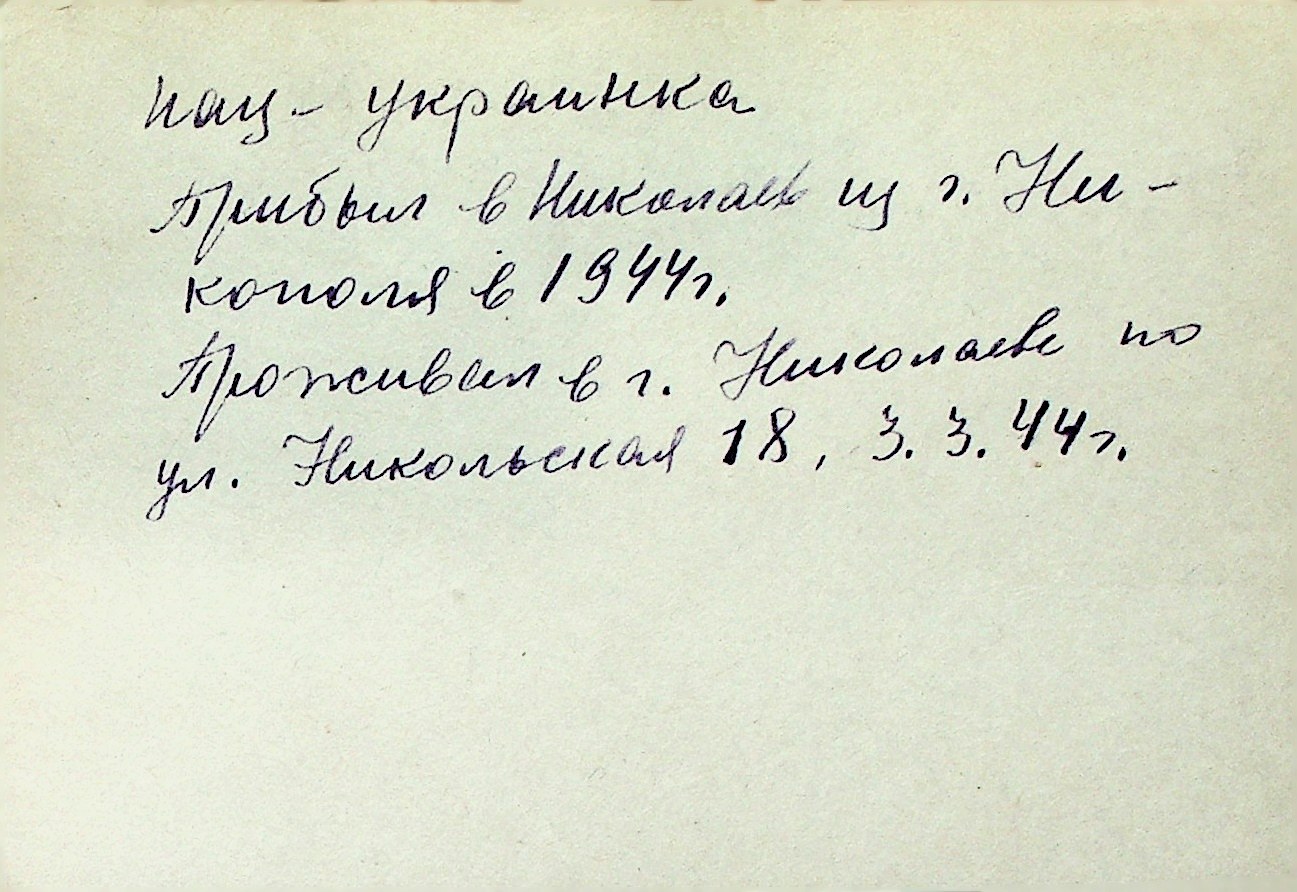 нац – украинка
Прибыл в Николаев из г. Ни-
кополя в 1944г.
Проживал в г. Николаеве по
ул. Никольская 18, 3.3.44г.